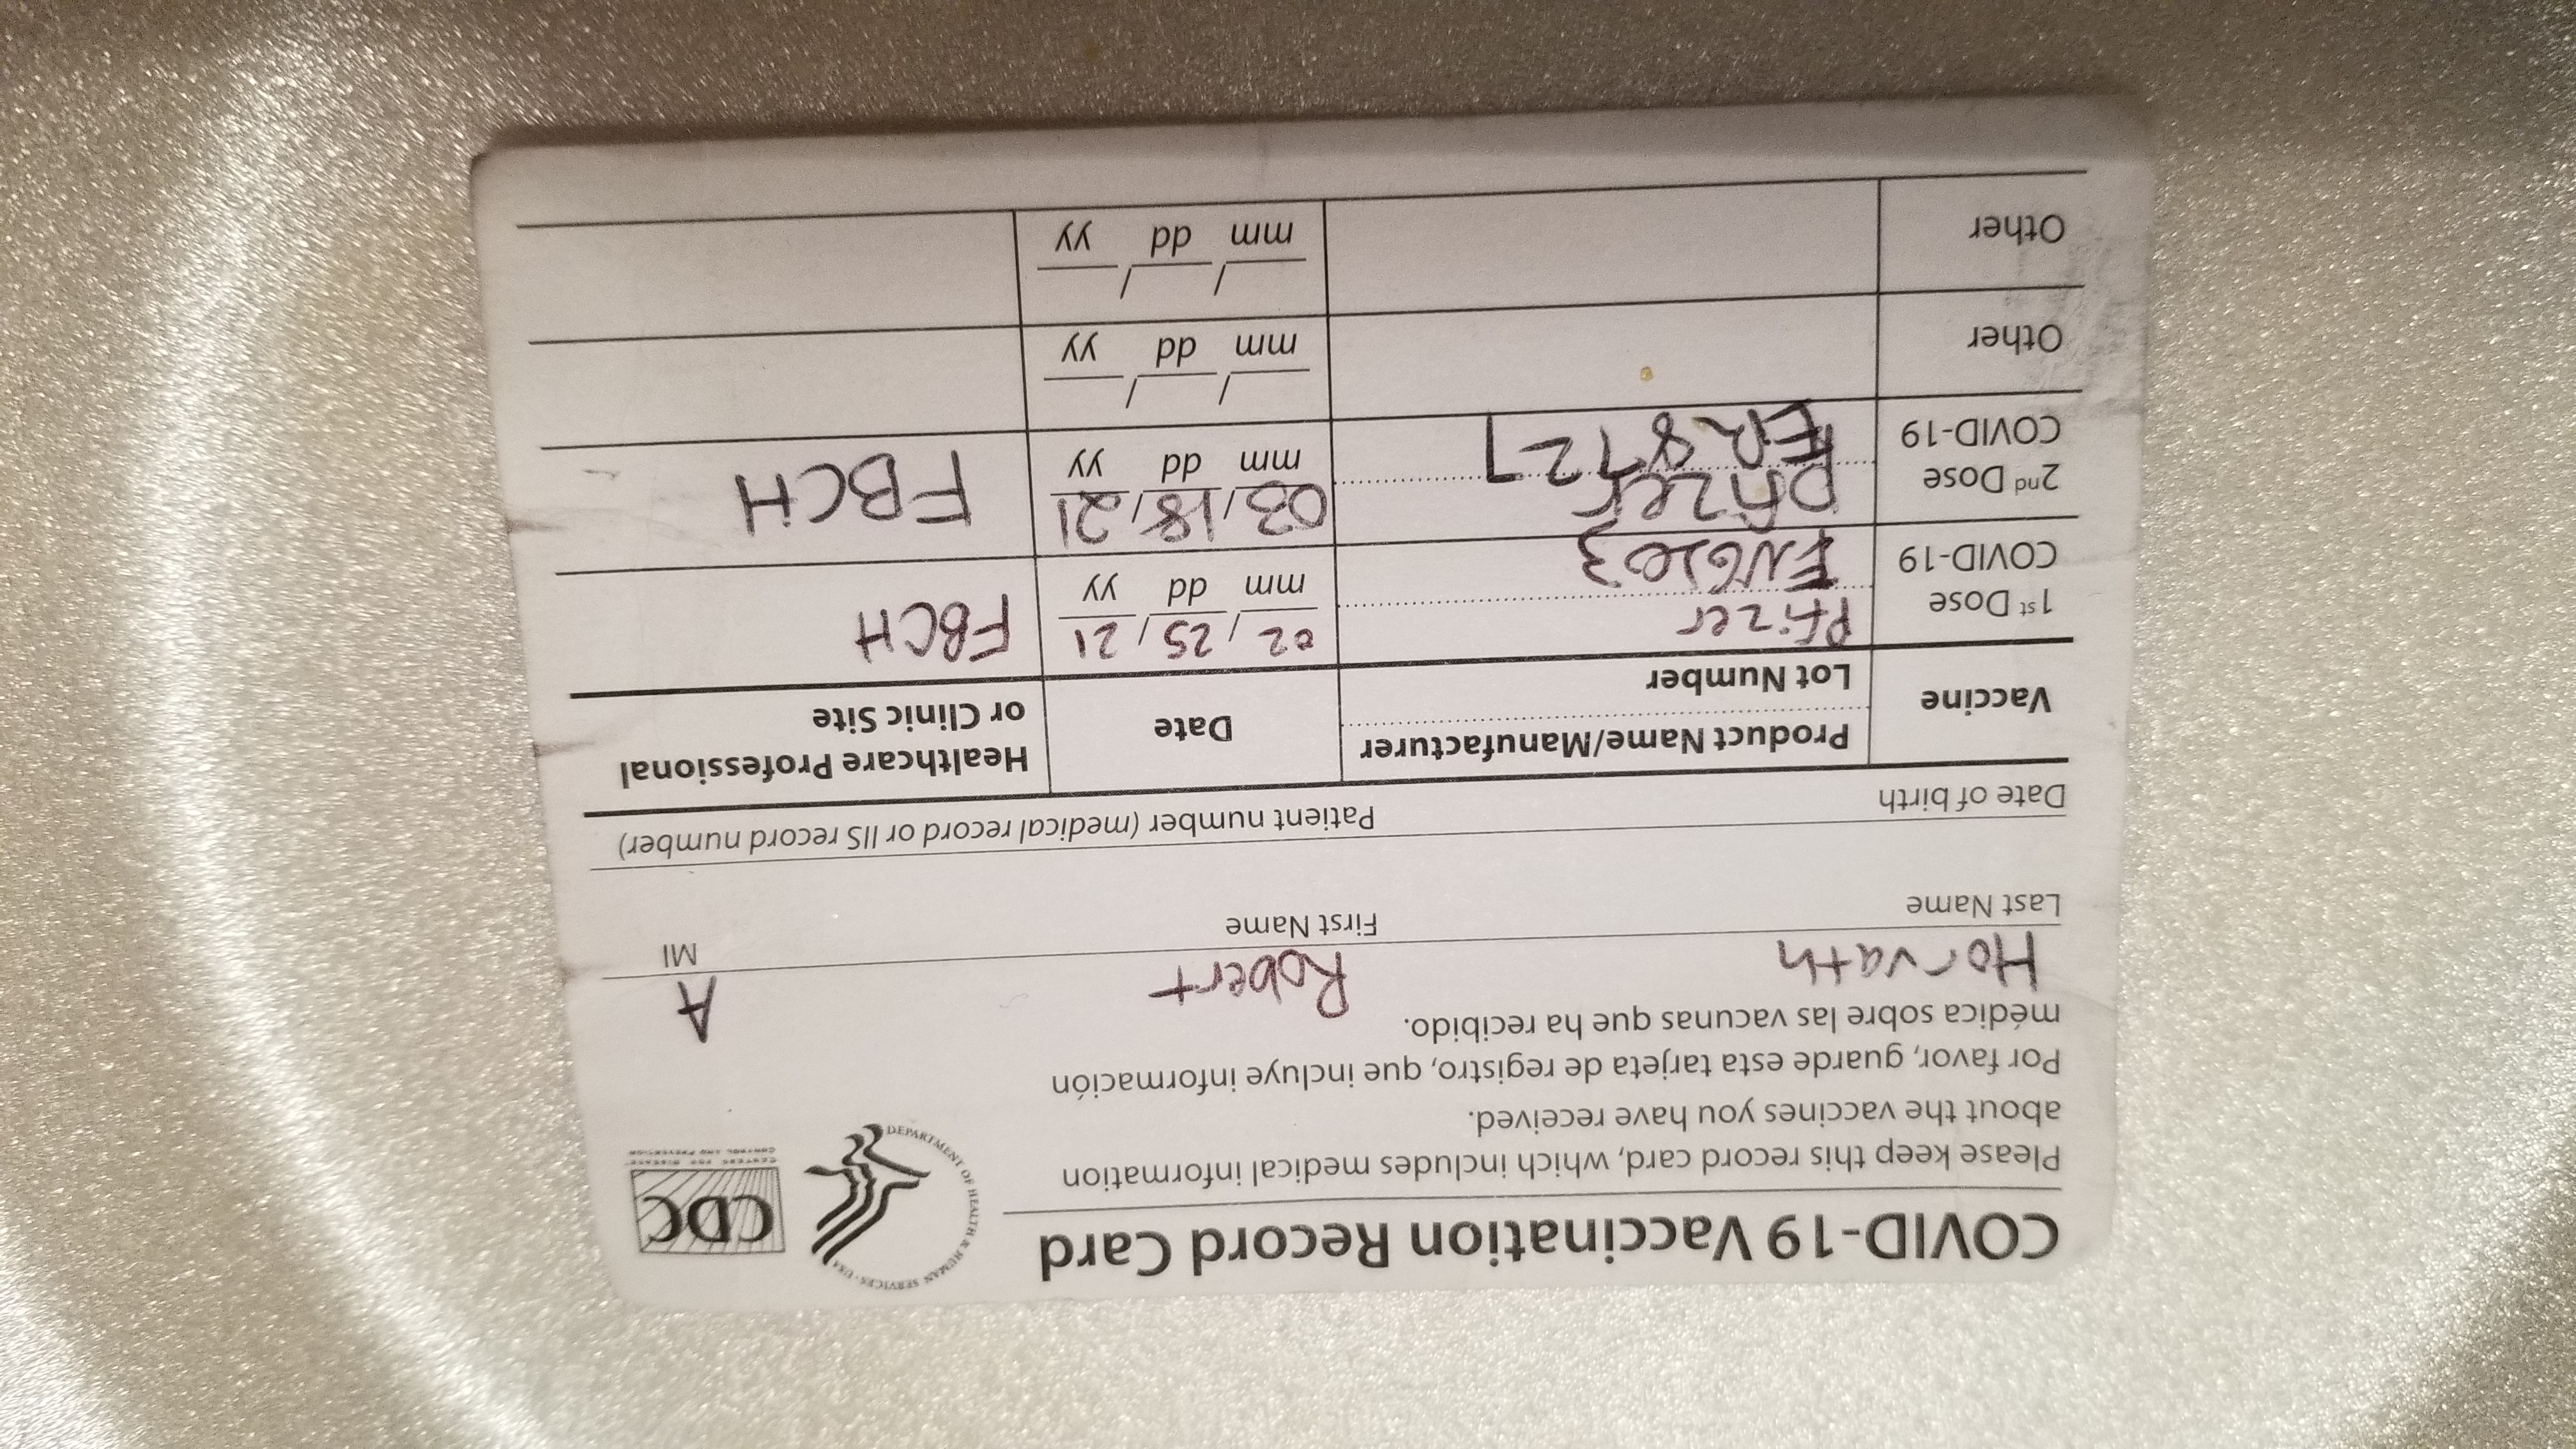 COVID-19 Vaccination Record Card
DEPARTMENT OF HEALTH & HUMAN SERVICES · USA
CDC
CENTERS FOR DISEASE
CONTROL AND PREVENTION
Please keep this record card, which includes medical information
about the vaccines you have received.
Por favor, guarde esta tarjeta de registro, que incluye información
médica sobre las vacunas que ha recibido.
Horvath Robert A
Last Name First Name MI
Date of birth Patient number (medical record or IIS record number)
Vaccine Product Name/Manufacturer Date Healthcare Professional
Lot Number or Clinic Site
1st Dose Pfizer 02/25/21 FBCH
COVID-19 mm dd yy
2nd Dose pfizer 03/18/21 FBCH
COVID-19 ER8727 mm dd yy
Other ___/___/___
mm dd yy
Other ___/___/___
mm dd yy